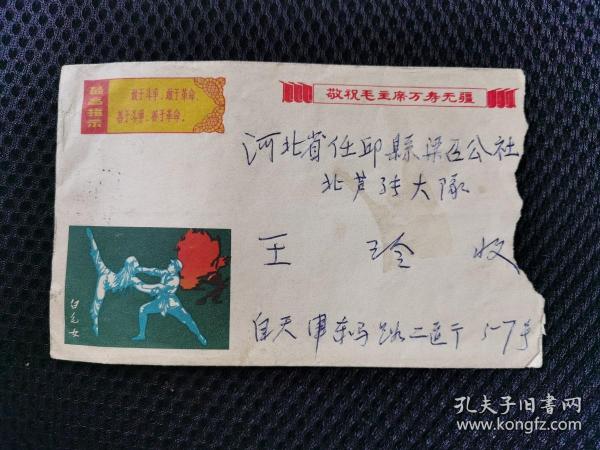 最高指示
敢于斗争，敢于革命，
善于斗争，善于革命。
敬祝毛主席万寿无疆
河北省任邱縣梁召公社
北芦张大隊
王 玲 收
自天津东马路二道 57号
白毛女
孔夫子旧书网
www.kongfz.com